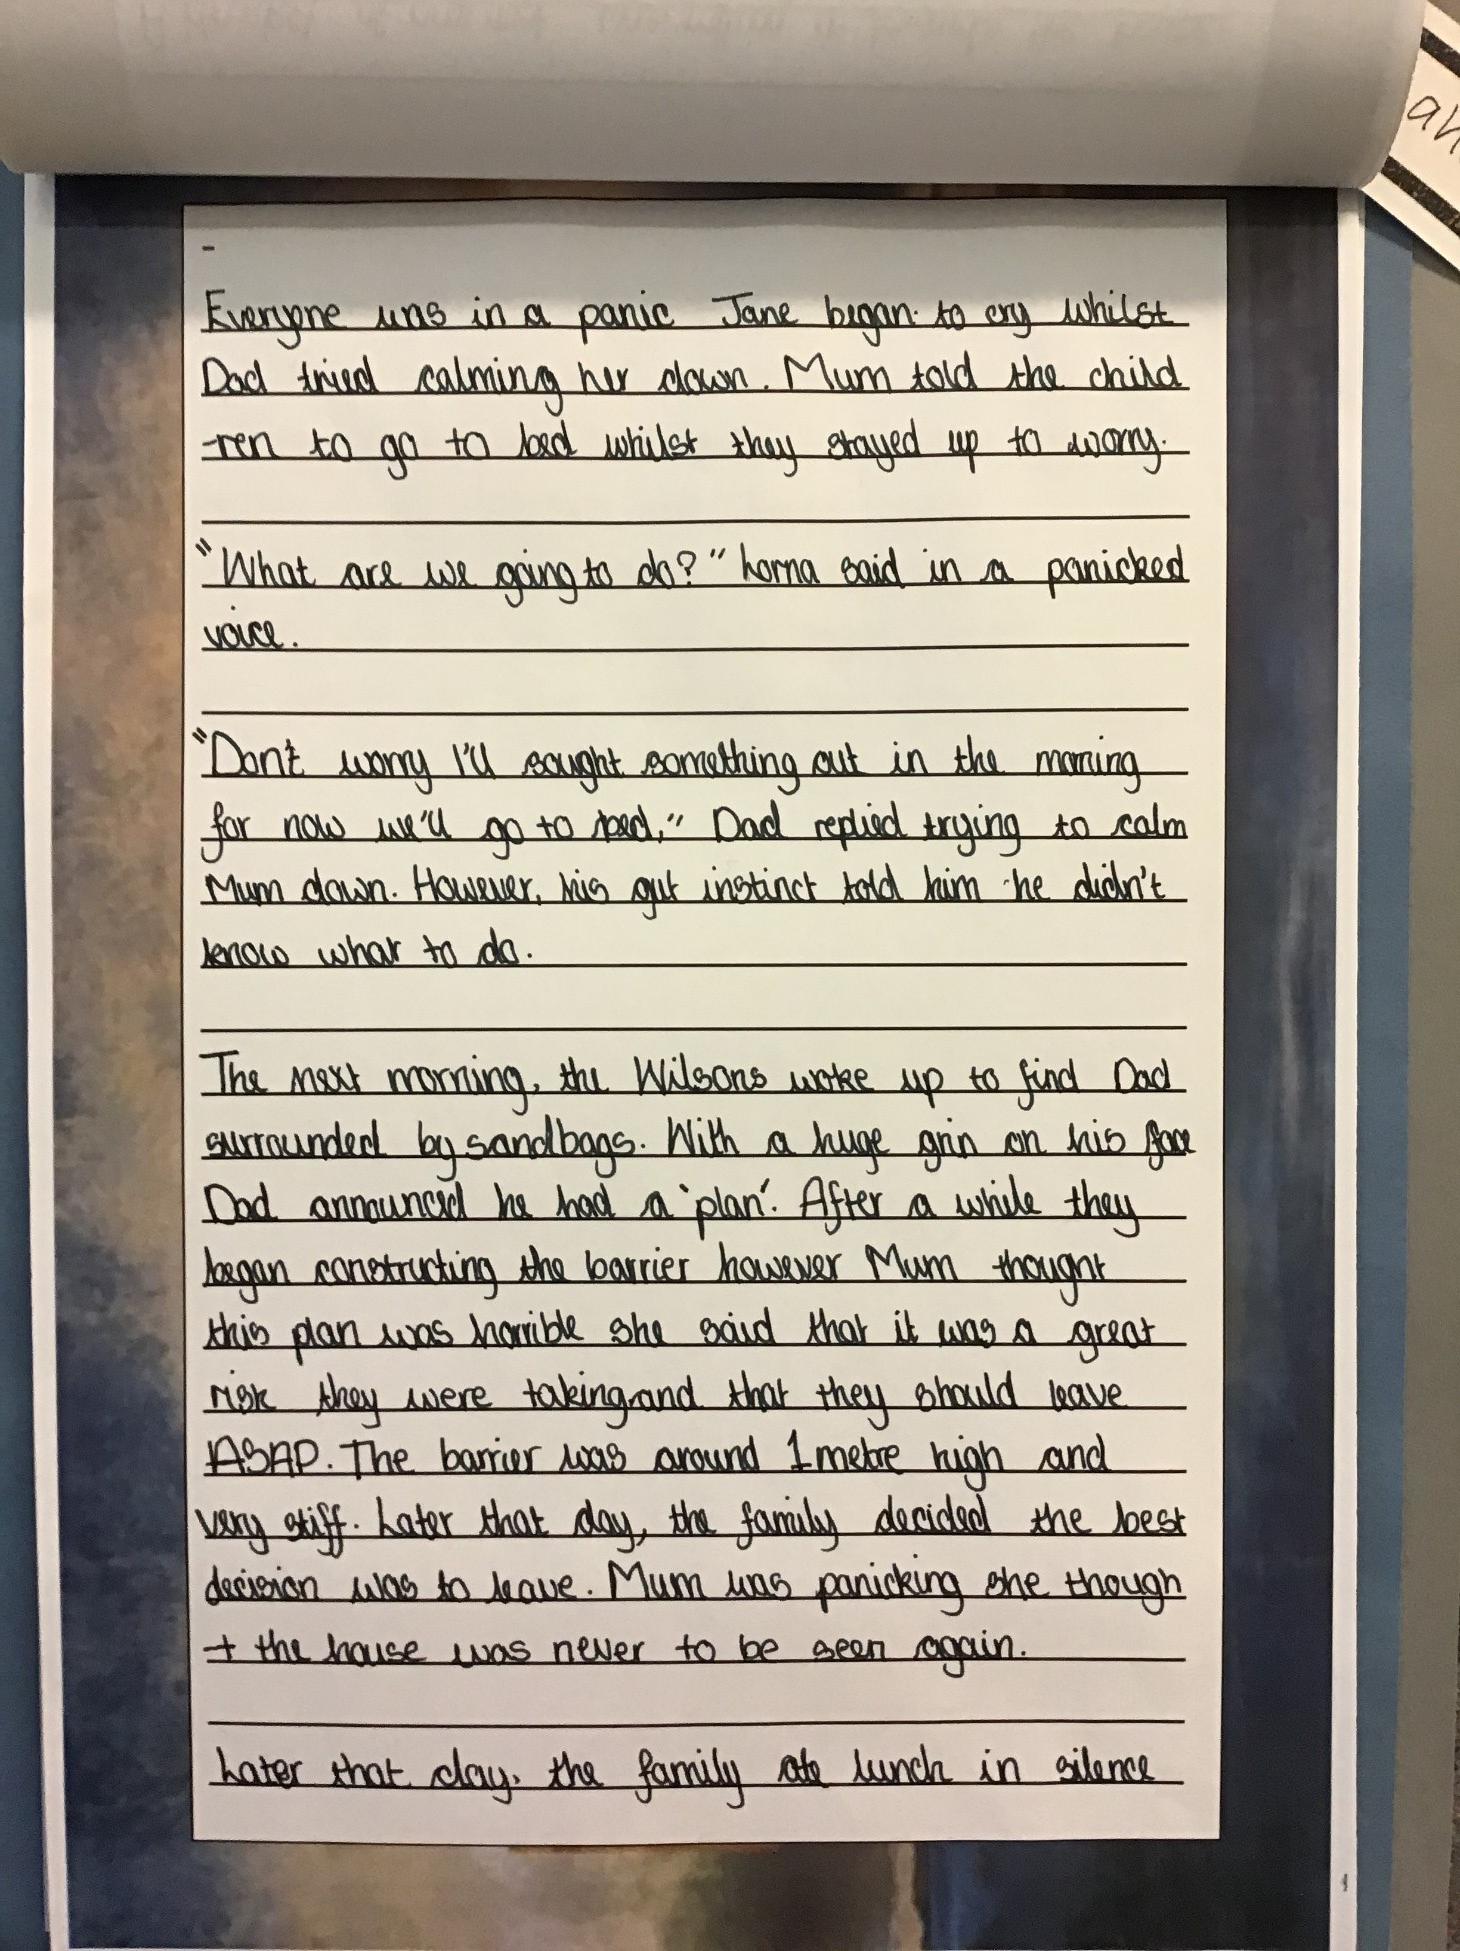 -
Everyone was in a panic Jane began to cry whilst
Dad tried calming her down. Mum told the child
-ren to go to bed whilst they stayed up to worry.
"What are we going to do?" Lorna said in a panicked
voice.
"Don't worry I'll sought something out in the morning
for now we'll go to bed," Dad replied trying to calm
Mum down. However, his gut instinct told him he didn't
know what to do.
The next morning, the Wilsons woke up to find Dad
surrounded by sandbags. With a huge grin on his face
Dad announced he had a 'plan'. After a while they
began constructing the barrier however Mum thought
this plan was horrible she said that it was a great
risk they were taking and that they should leave
ASAP. The barrier was around 1 metre high and
very stiff. Later that day, the family decided the best
decision was to leave. Mum was panicking she though
t the house was never to be seen again.
Later that day, the family ate lunch in silence